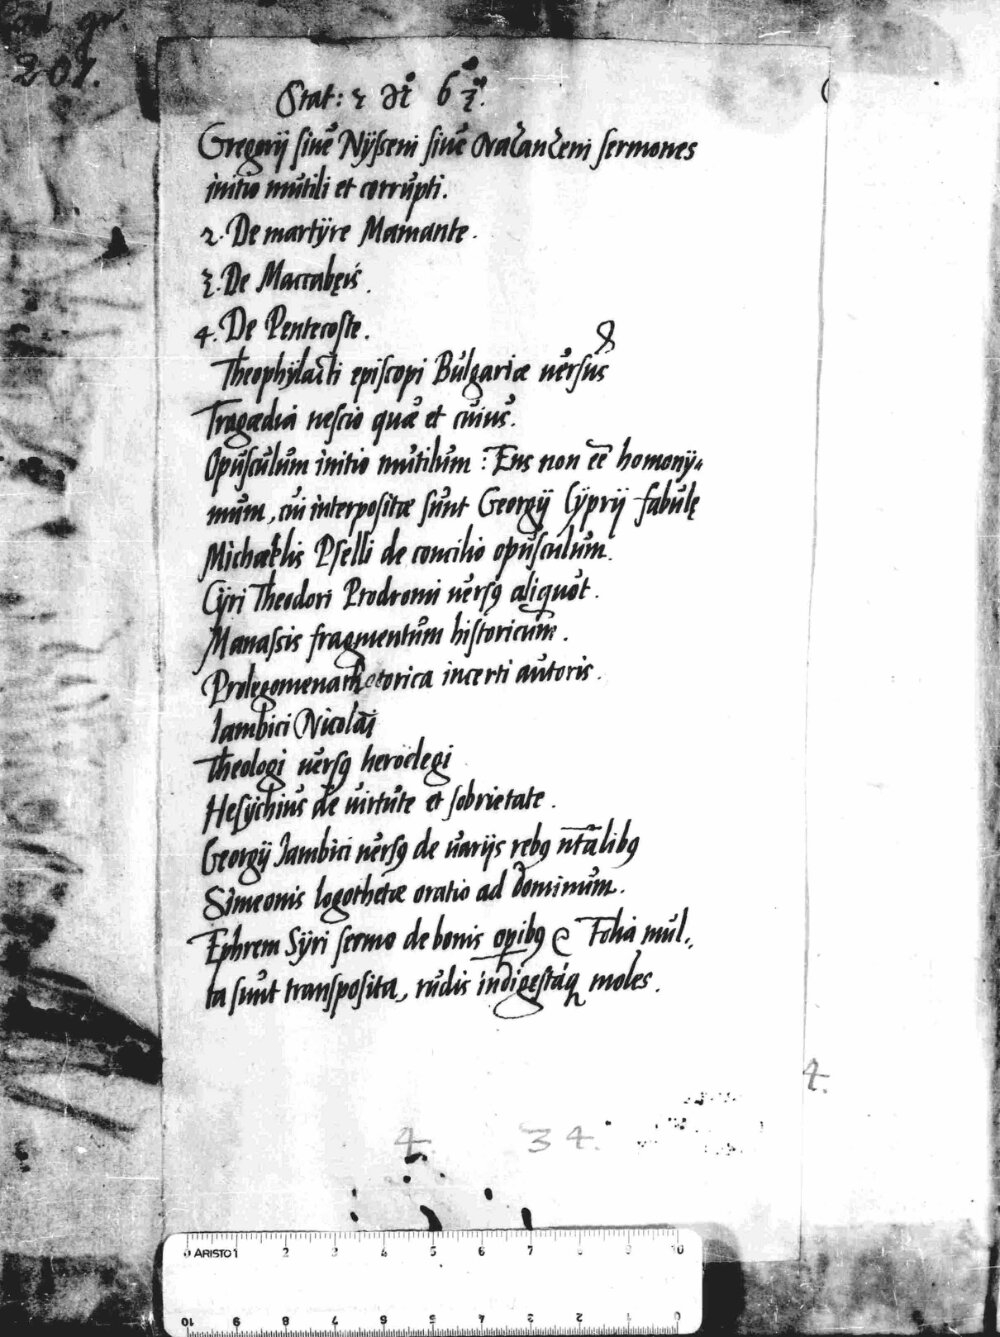 Cod. gr
207.
Stat:
Gregorÿ siuè Nÿsseni siuè Naʒanʒeni sermones
initio mutili et corrupti.
2. De martÿre Mamante.
3. De Maccabęis.
4. De Pentecoste.
Theophÿlacti episcopi Bulgariæ uersus
Tragædia nescio quæ et cuius.
Opusculum initio mutilum: Ens non eē homonÿ-
mum, cui interpositæ sunt Georgÿ Cÿprÿ fabulę
Michaelis Pselli de concilio opusculum.
Cÿri Theodori Prodromi uersꝯ aliquot.
Manassis fragmentum historicum.
Prolegomena rhetorica incerti autoris.
Iambici Nicolai
Theologi uersꝯ heroelegi
Hesÿchius de uirtute et sobrietate.
Georgÿ Iambici uersꝯ de uarijs rebꝯ nt̄alibꝯ
Simeonis logothetæ oratio ad dominum.
Ephrem Sÿri sermo de bonis opibꝯ Folia mul-
ta sunt transposita, rudis indigestáq moles.
4.
4. 34.
0 ARISTO 1 2 3 4 5 6 7 8 9 10
10 9 8 7 6 5 4 3 2 1 0